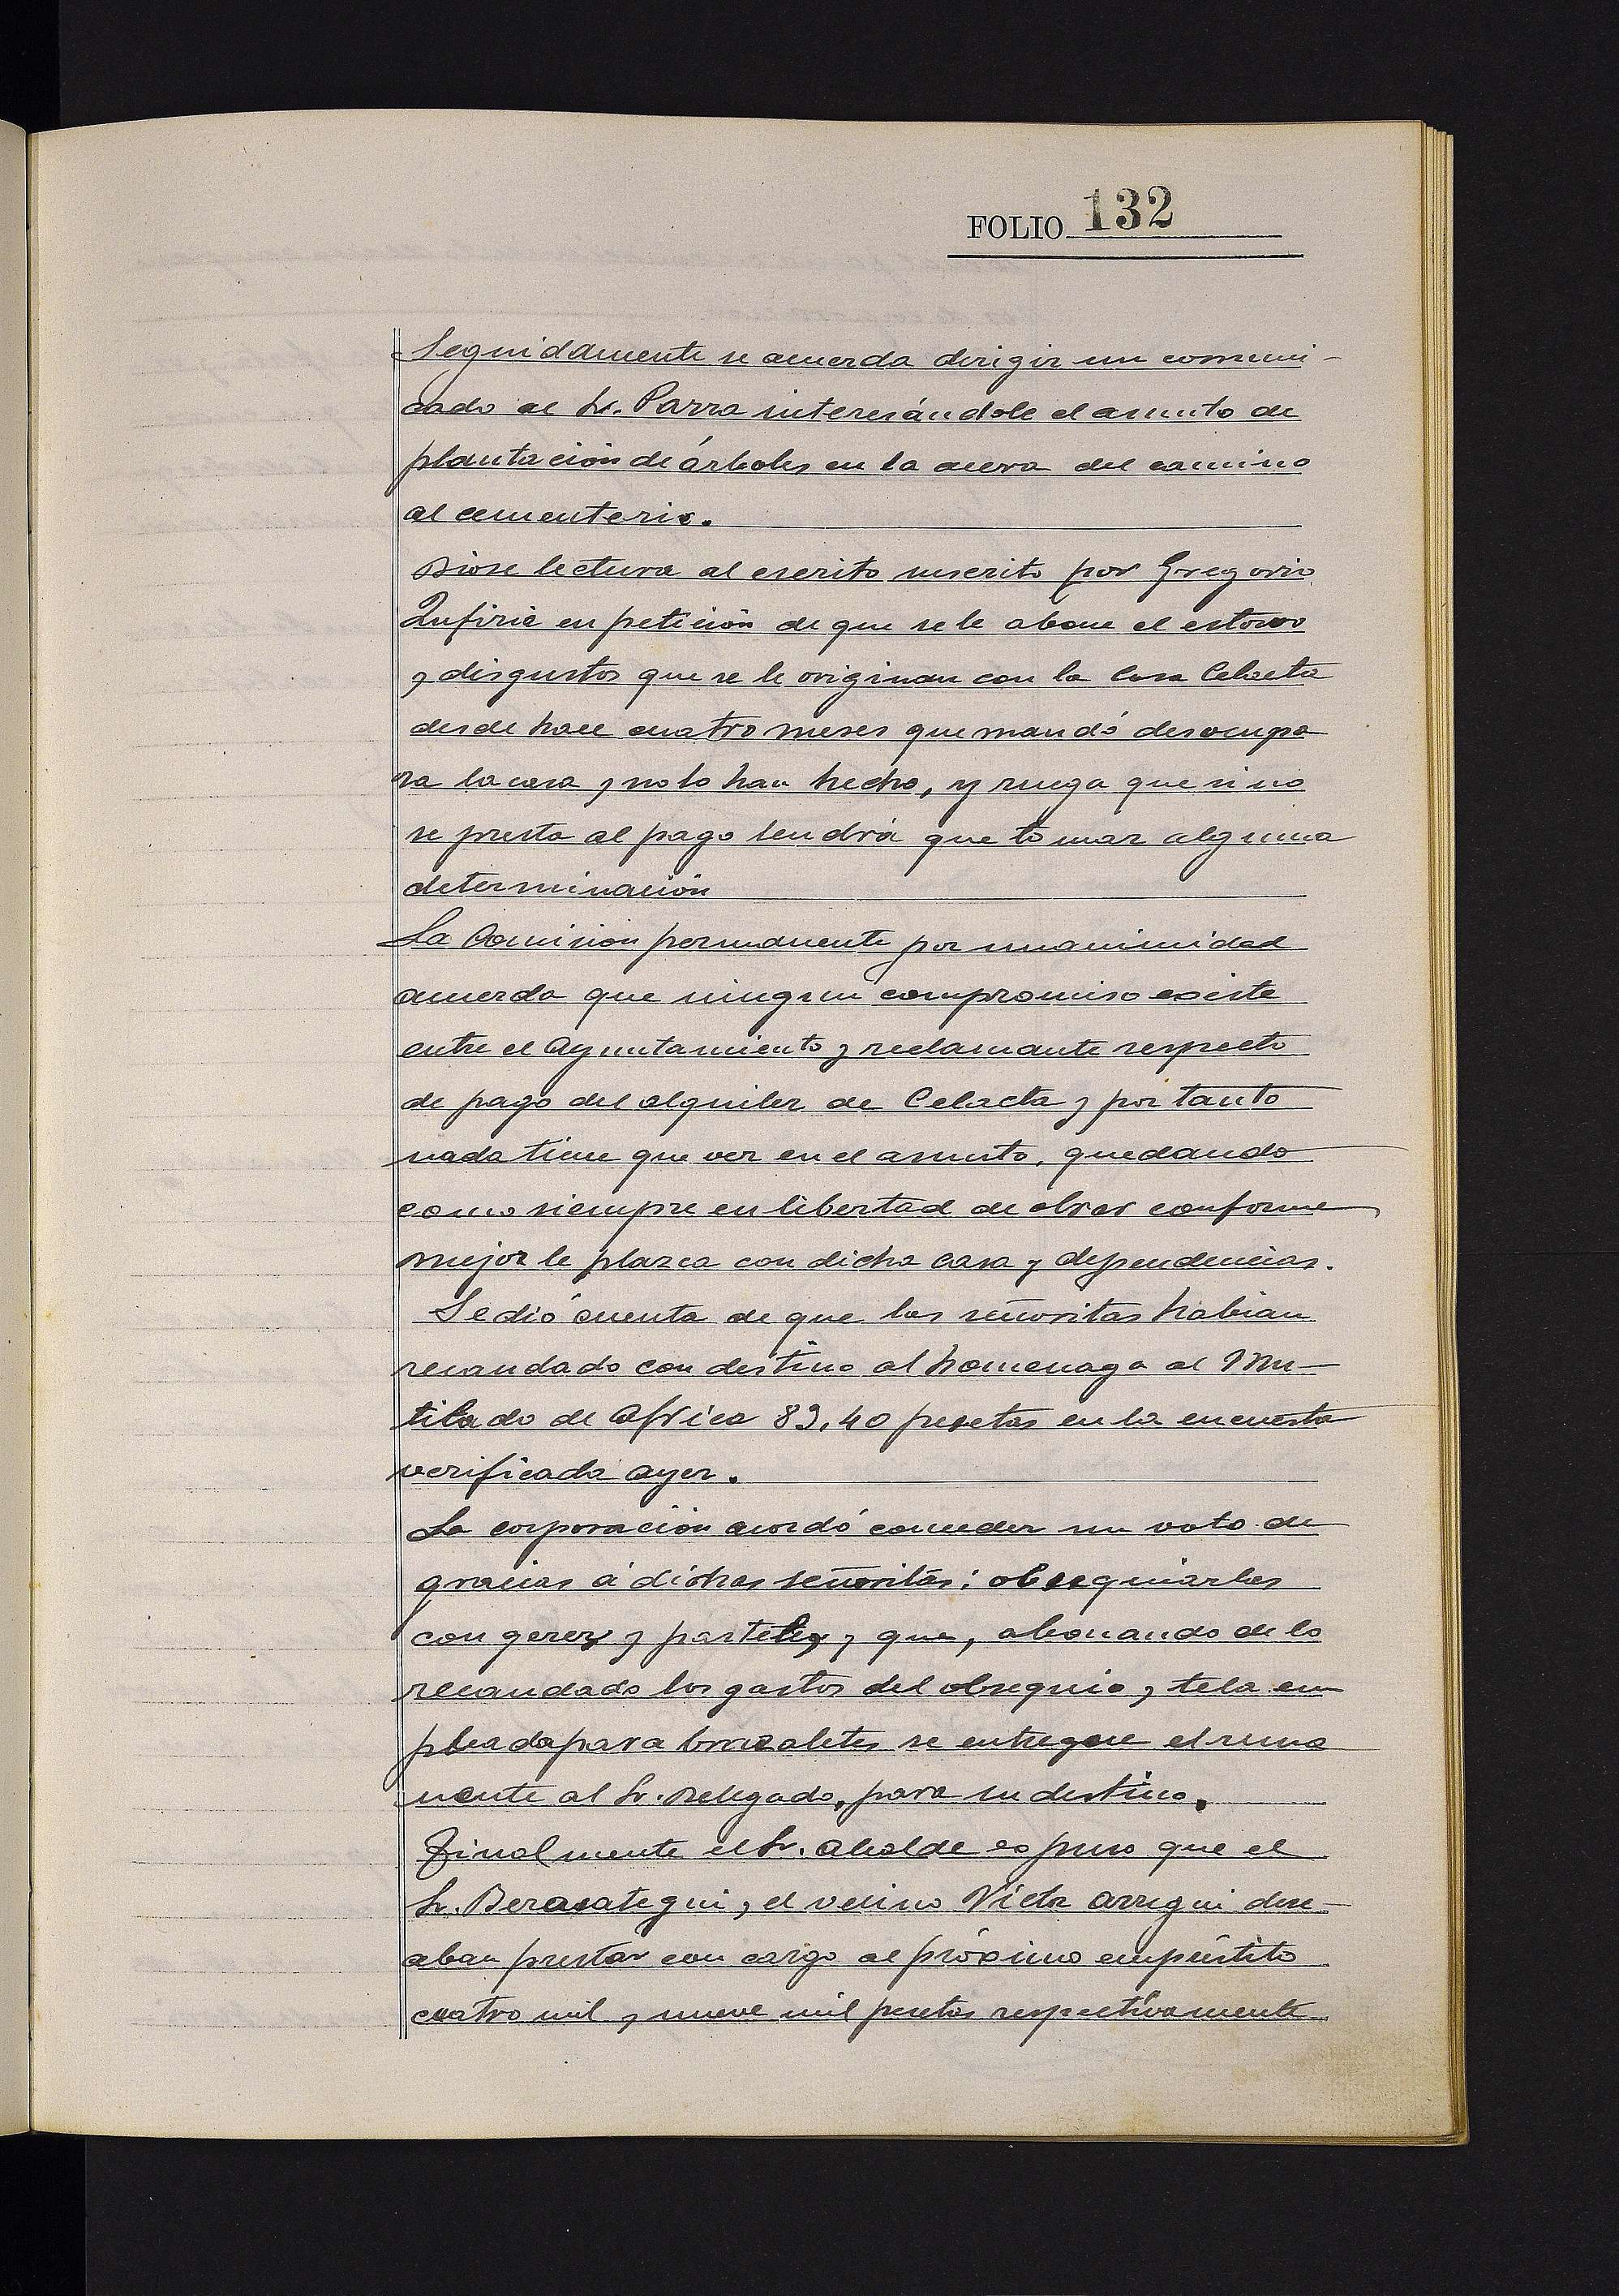 FOLIO 132
Seguidamente se acuerda dirigir un comuni-
cado al Sr. Parra interesándole el asunto de
plantación de árboles en la acera del camino
al cementerio.
Diose lectura al escrito suscrito por Gregorio
Zufiria en petición de que se le abone el estorvo
y disgustos que se le originan con la Casa Celaeta
desde hace cuatro meses que mandó desocupa
ra la casa y no lo han hecho, y ruega que si no
se presta al pago tendrá que tomar alguna
determinación
La Comision permanente por unanimidad
acuerda que ningun compromiso existe
entre el Ayuntamiento y reclamante respecto
de pago del alquiler de Celaeta y por tanto
nada tiene que ver en el asunto, quedando
como siempre en libertad de obrar conforme
mejor le plazca con dicha casa y dependencias.
Se dió cuenta de que las señoritas habian
recaudado con destino al homenaga al Mu-
tilado de Africa 89,40 pesetas en la encuesta
verificada ayer.
La corporación acordó conceder un voto de
gracias á dichas señoritas: obsequiarles
con gerez y pasteles y que, abonando de lo
recaudado los gastos del obsequio y tela em
pleada para brazaletes se entregue el rema
nente al Sr. Delegado, para su destino.
Finalmente el Sr. Alcalde expuso que el
Sr. Berasategui y el vecino Victor Arregui dese-
aban prestar con cargo al próximo empréstito
cuatro mil y nueve mil pesetas respectivamente